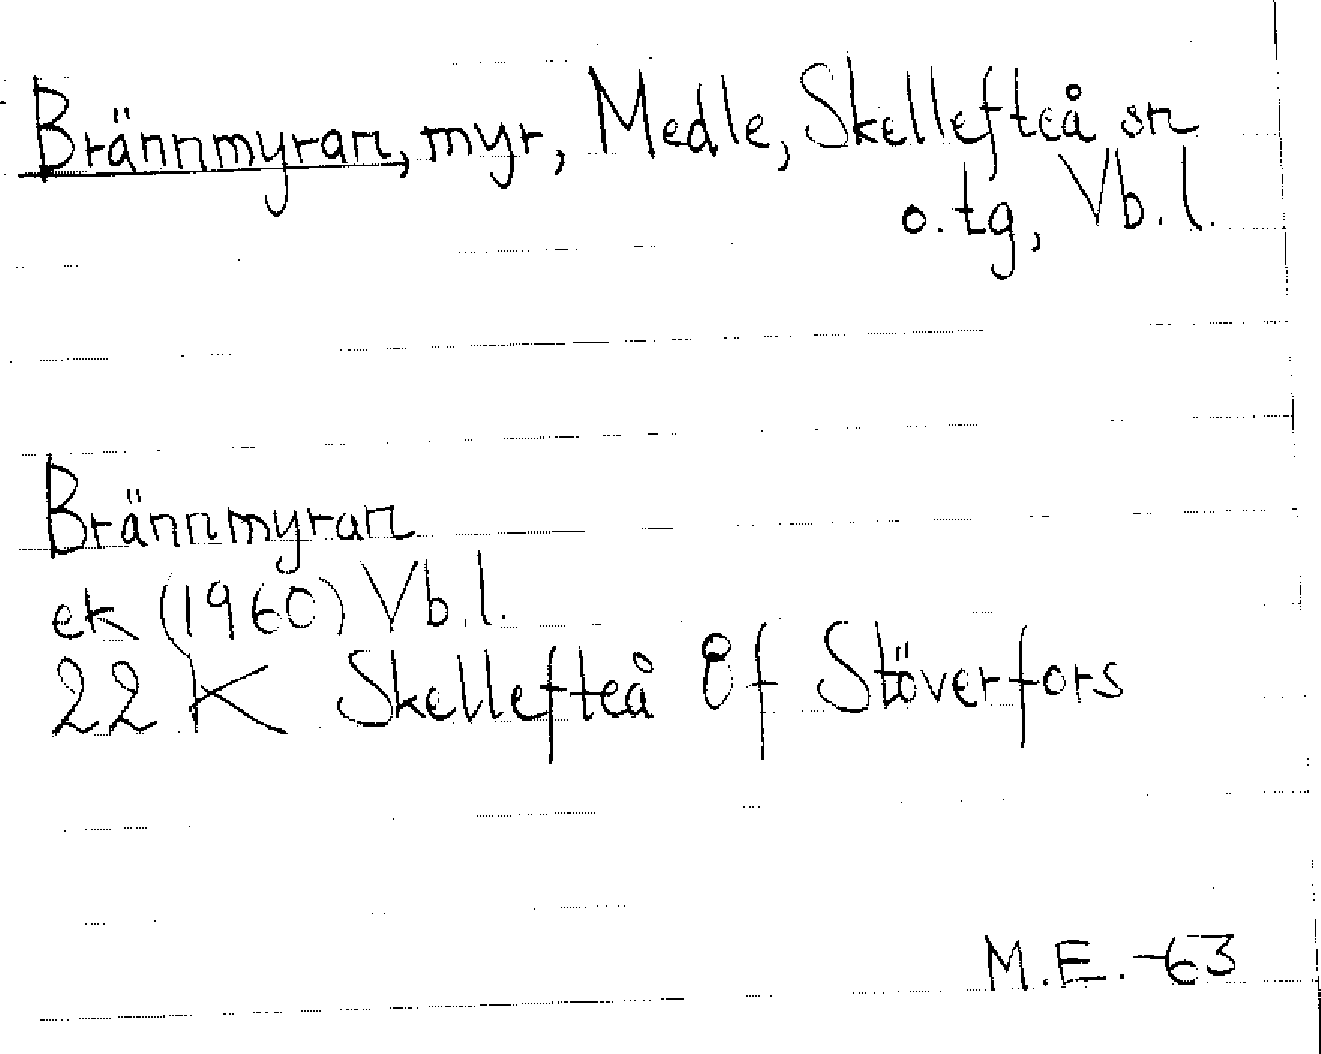 Brännmyran, myr, Medle, Skellefteå sn
o. tg, Vb. l.
Brännmyran
ek (1960) Vb. l.
22 K Skellefteå 8f Stöverfors
M.E. -63